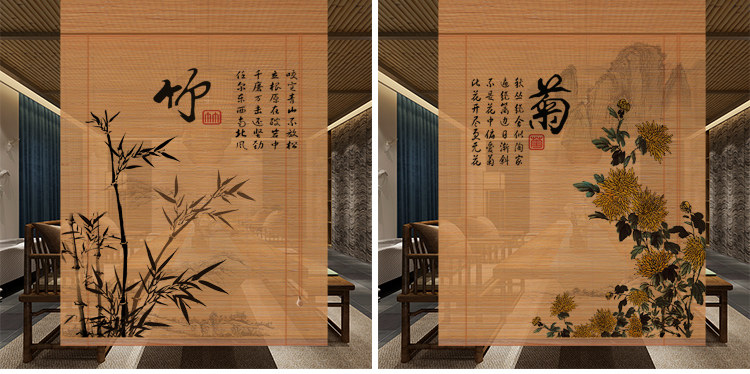 竹
咬定青山不放松
立根原在破岩中
千磨万击还坚劲
任尔东西南北风
菊
秋丛绕舍似陶家
遍绕篱边日渐斜
不是花中偏爱菊
此花开尽更无花